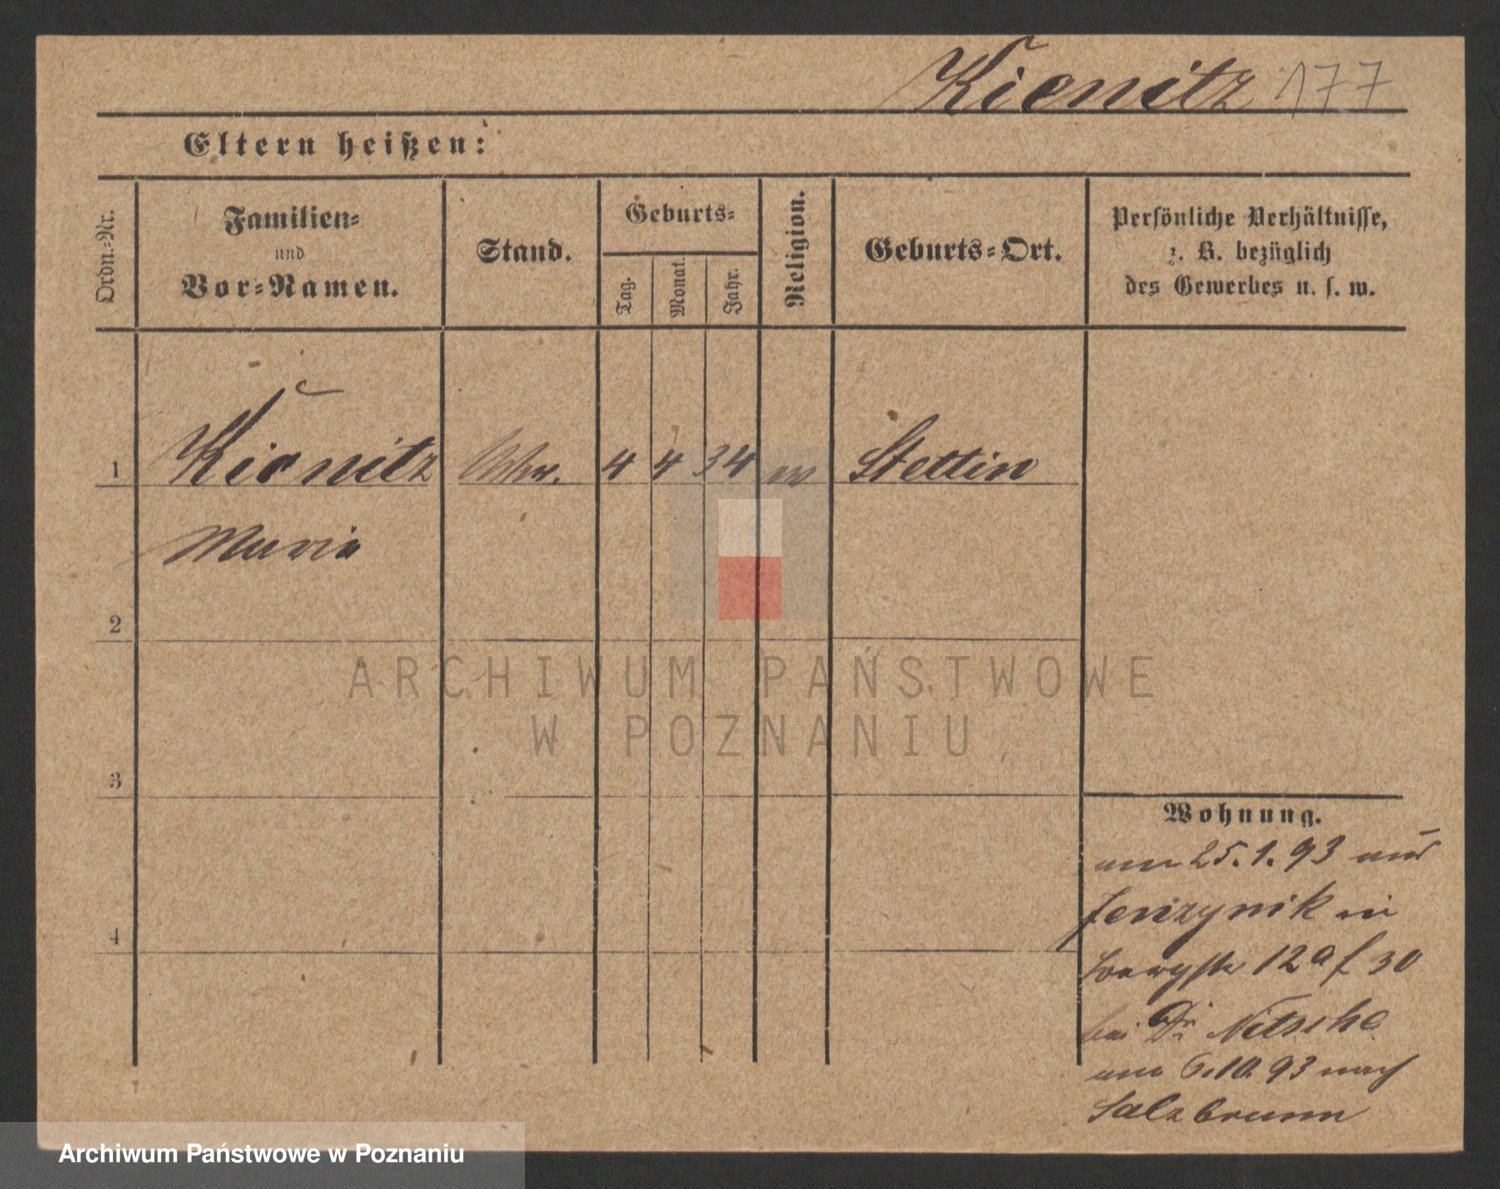 Kienitz 177
Eltern heißen:
Ordn.-Nr.
Familien-
und
Vor-Namen.
Stand.
Geburts-
Tag.
Monat.
Jahr.
Religion.
Geburts-Ort.
Persönliche Verhältnisse,
z. B. bezüglich
des Gewerbes u. s. w.
1 Kienitz 4 4 34 Stettin
Maria
2
3
4
Wohnung.
am 25.1.93 aus
in
12a f 30
bei Dr Nitsche
am 6.10.93 nach
Salzbrunn
ARCHIWUM PAŃSTWOWE
W POZNANIU
Archiwum Państwowe w Poznaniu